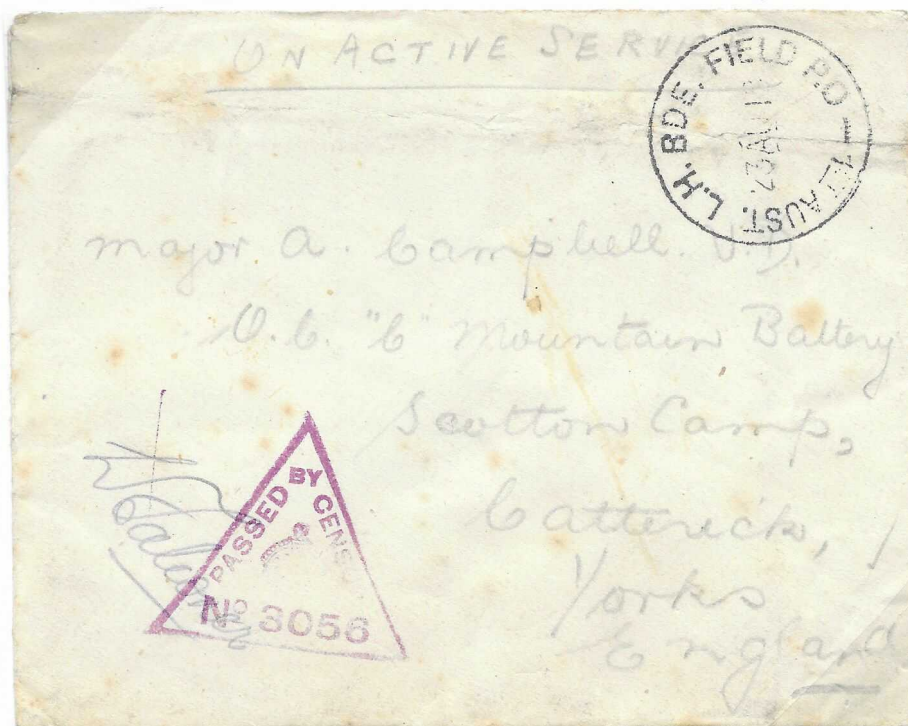 ON ACTIVE SERVICE
1ST AUST. L.H. BDE. FIELD P.O
23 AU 18
Major A. Campbell. V.D.
O.C. "C" Mountain Battery
Scotton Camp,
Catterick,
Yorks
England
PASSED BY CENSOR
No 3056